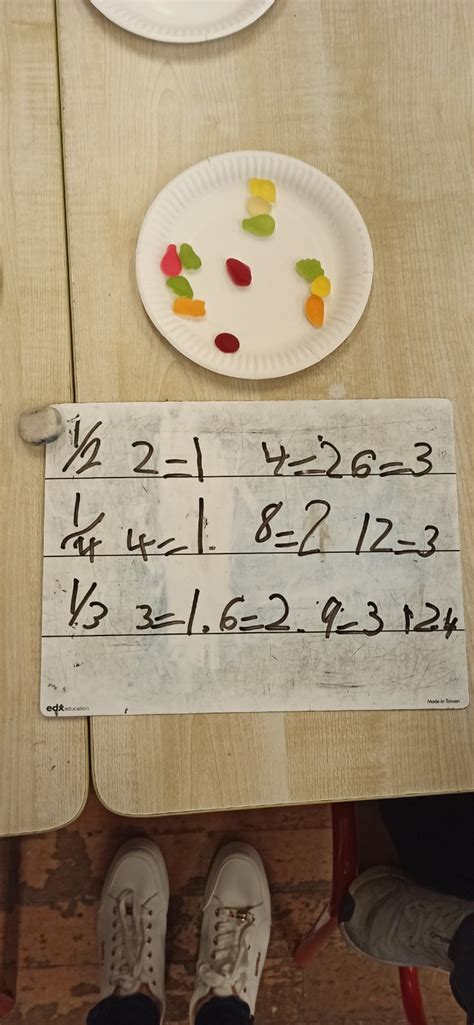 1/2 2=1 4=2 6=3
1/4 4=1. 8=2 12=3
1/3 3=1. 6=2. 9=3 12=4
edx education
Made in Taiwan